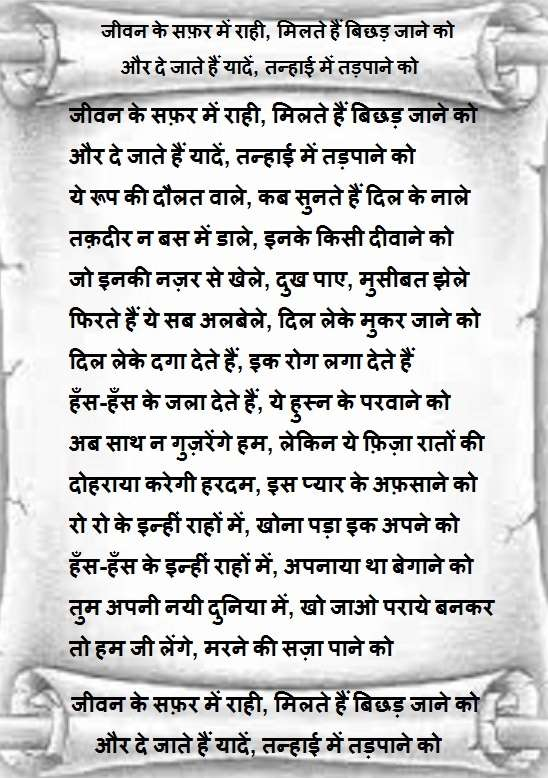 जीवन के सफ़र में राही, मिलते हैं बिछड़ जाने को
और दे जाते हैं यादें, तन्हाई में तड़पाने को
जीवन के सफ़र में राही, मिलते हैं बिछड़ जाने को
और दे जाते हैं यादें, तन्हाई में तड़पाने को
ये रूप की दौलत वाले, कब सुनते हैं दिल के नाले
तक़दीर न बस में डाले, इनके किसी दीवाने को
जो इनकी नज़र से खेले, दुख पाए, मुसीबत झेले
फिरते हैं ये सब अलबेले, दिल लेके मुकर जाने को
दिल लेके दगा देते हैं, इक रोग लगा देते हैं
हँस-हँस के जला देते हैं, ये हुस्न के परवाने को
अब साथ न गुज़रेंगे हम, लेकिन ये फ़िज़ा रातों की
दोहराया करेगी हरदम, इस प्यार के अफ़साने को
रो रो के इन्हीं राहों में, खोना पड़ा इक अपने को
हँस-हँस के इन्हीं राहों में, अपनाया था बेगाने को
तुम अपनी नयी दुनिया में, खो जाओ पराये बनकर
तो हम जी लेंगे, मरने की सज़ा पाने को
जीवन के सफ़र में राही, मिलते हैं बिछड़ जाने को
और दे जाते हैं यादें, तन्हाई में तड़पाने को